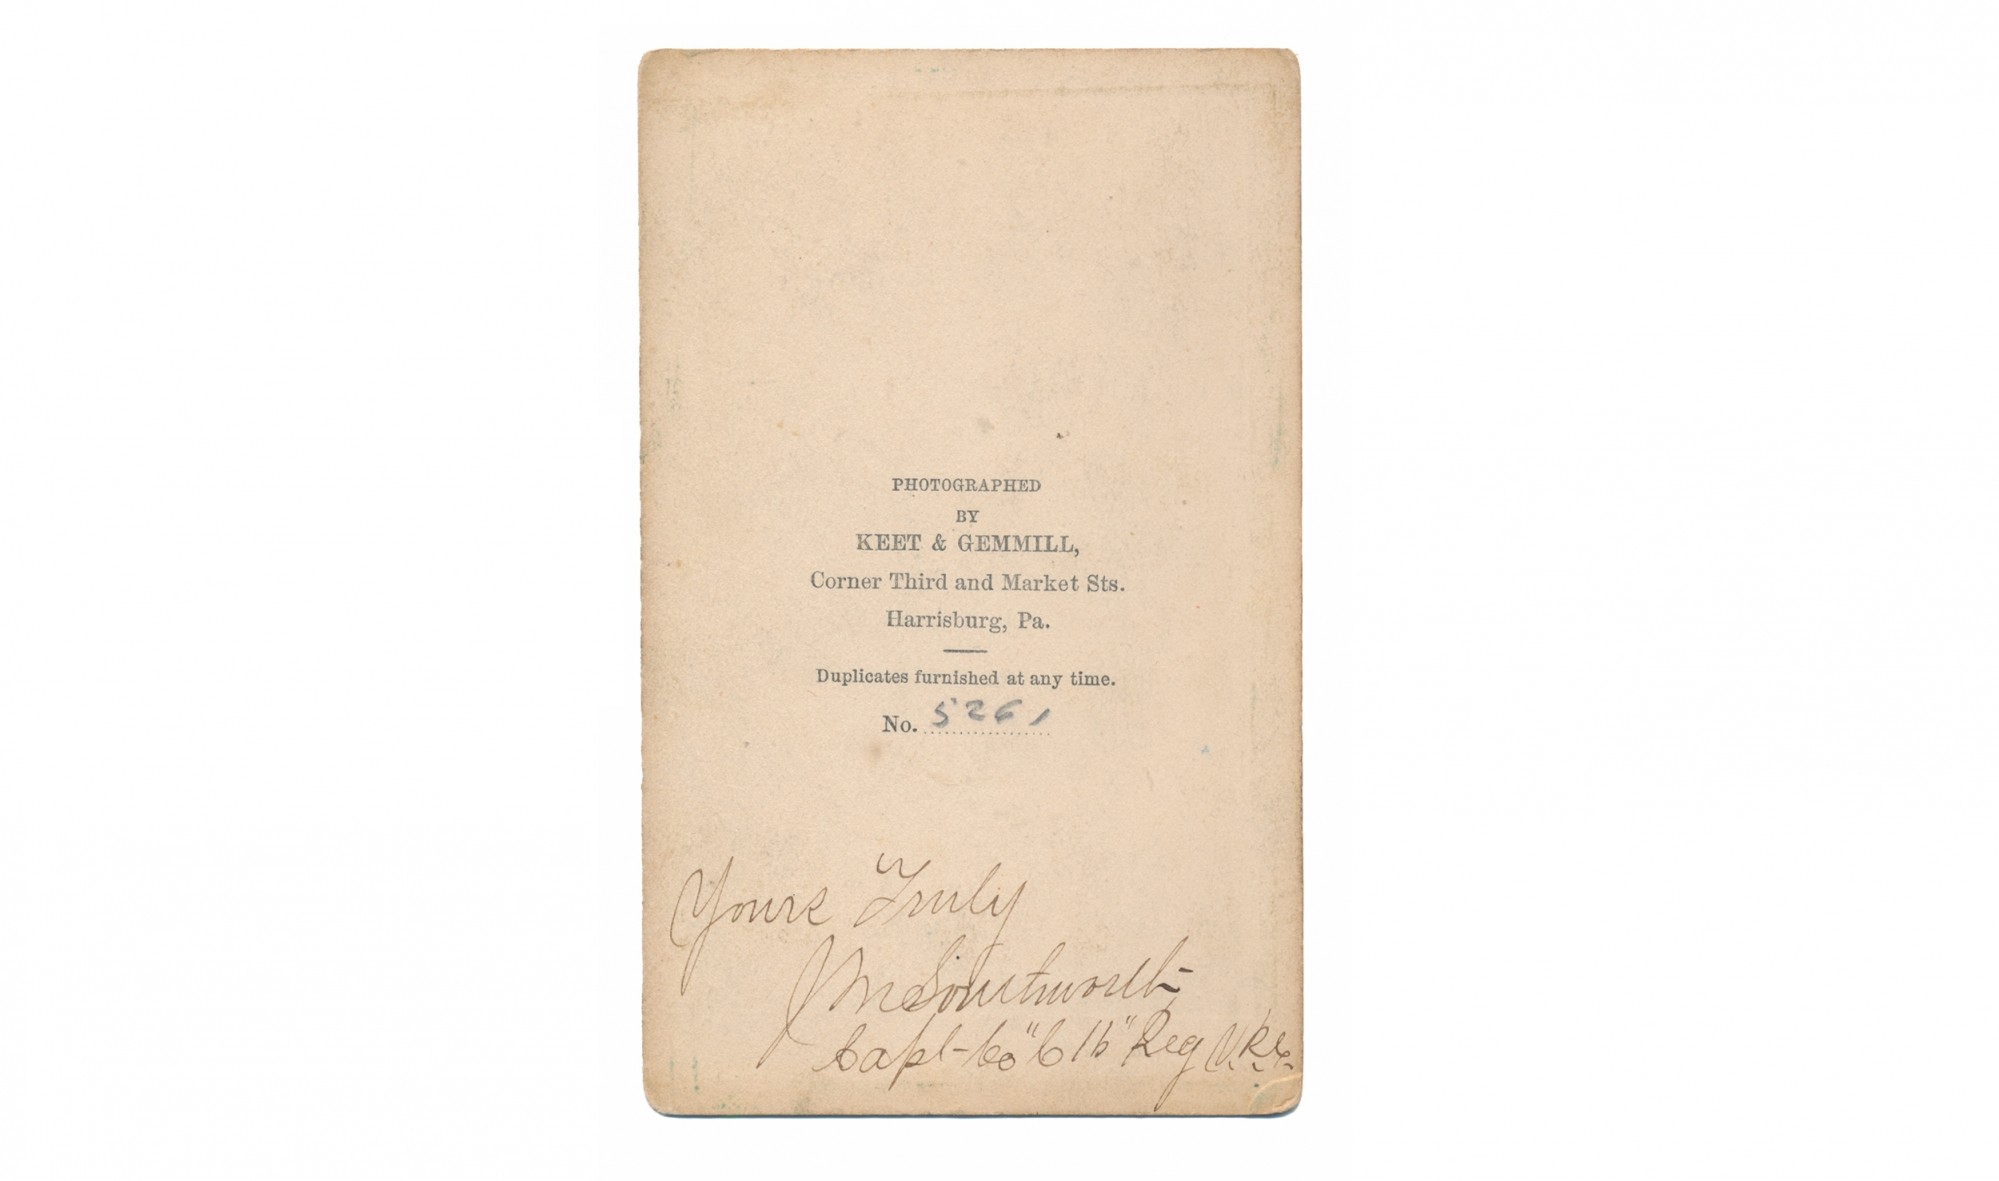 PHOTOGRAPHED
BY
KEET & GEMMILL,
Corner Third and Market Sts.
Harrisburg, Pa.
Duplicates furnished at any time.
No. 5261
Yours Truly
Southworth
Capt- Co "C 16" Reg V.R.C.